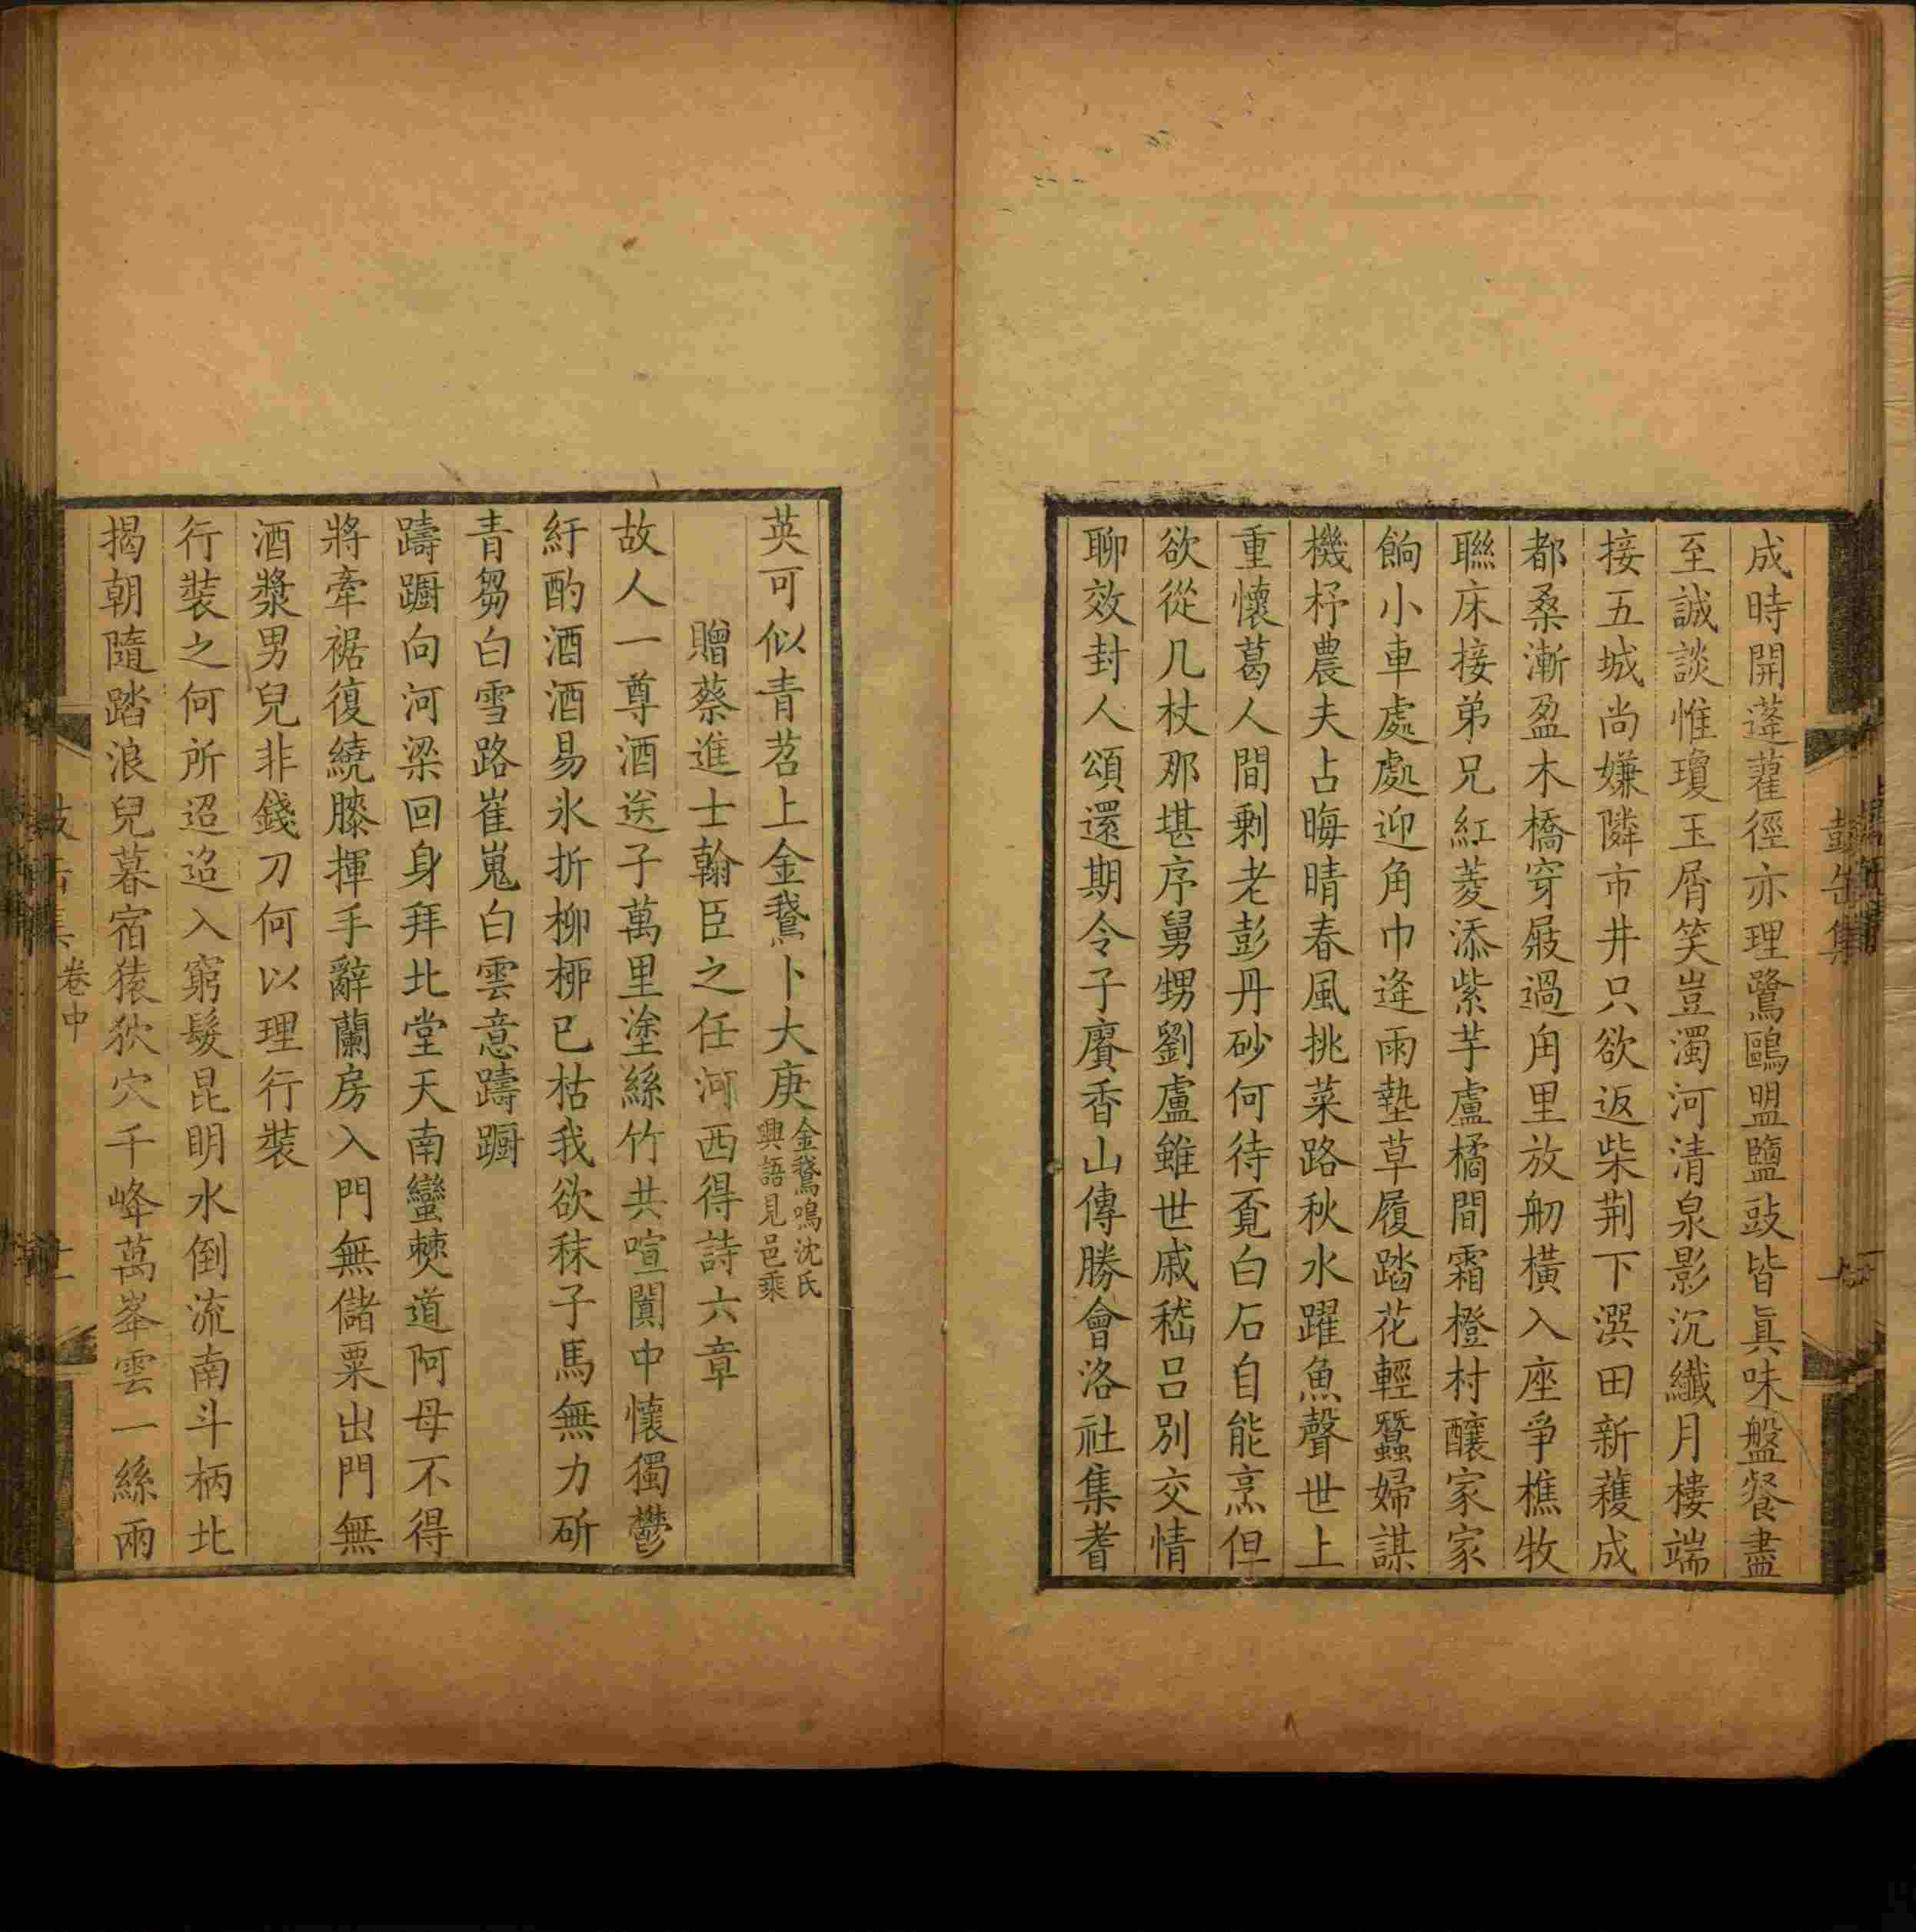 成時開蓬藋徑亦理鷺鷗盟鹽豉皆眞味盤餐盡
至誠談惟瓊玉屑笑豈濁河清泉影沉纖月樓端
接五城尚嫌隣市井只欲返柴荆下潠田新穫成
都桑漸盈木橋穿屐過甪里放舠橫入座爭樵牧
聯床接弟兄紅菱添紫芋盧橘間霜橙村釀家家
餉小車處處迎角巾逢雨墊草履踏花輕蠶婦謀
機杼農夫占晦晴春風挑菜路秋水躍魚聲世上
重懷葛人間剩老彭丹砂何待覔白石自能烹但
欲從几杖那堪序舅甥劉盧雖世戚嵇呂別交情
聊效封人頌還期令子賡香山傳勝會洛社集耆
英可似青苕上金鵞卜大庚
金鵞鳴沈氏
興語見邑乘
贈蔡進士翰臣之任河西得詩六章
故人一尊酒送子萬里塗絲竹共喧闐中懷獨鬱
紆酌酒酒易氷折柳桺已枯我欲秣子馬無力斫
青芻白雪路崔嵬白雲意躊躕
躊躕向河梁回身拜北堂天南蠻僰道阿母不得
將牽裾復繞膝揮手辭蘭房入門無儲粟出門無
酒漿男兒非錢刀何以理行裝
行裝之何所迢迢入窮髮昆明水倒流南斗柄北
揭朝隨踏浪兒暮宿猿狖穴千峰萬峯雲一絲兩
卷中